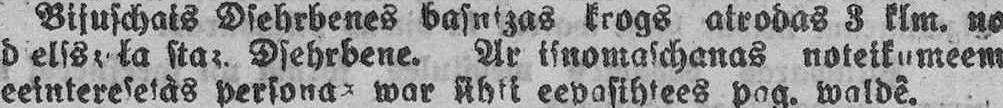 Bijuschais Dsehrbenes basnizas krogs atrodas 3 klm. no
dselszela staz. Dsehrbene. Ar isnomaschanas noteikumeem
eeinteresetàs personas war sihki eepasihtees pag. waldê.